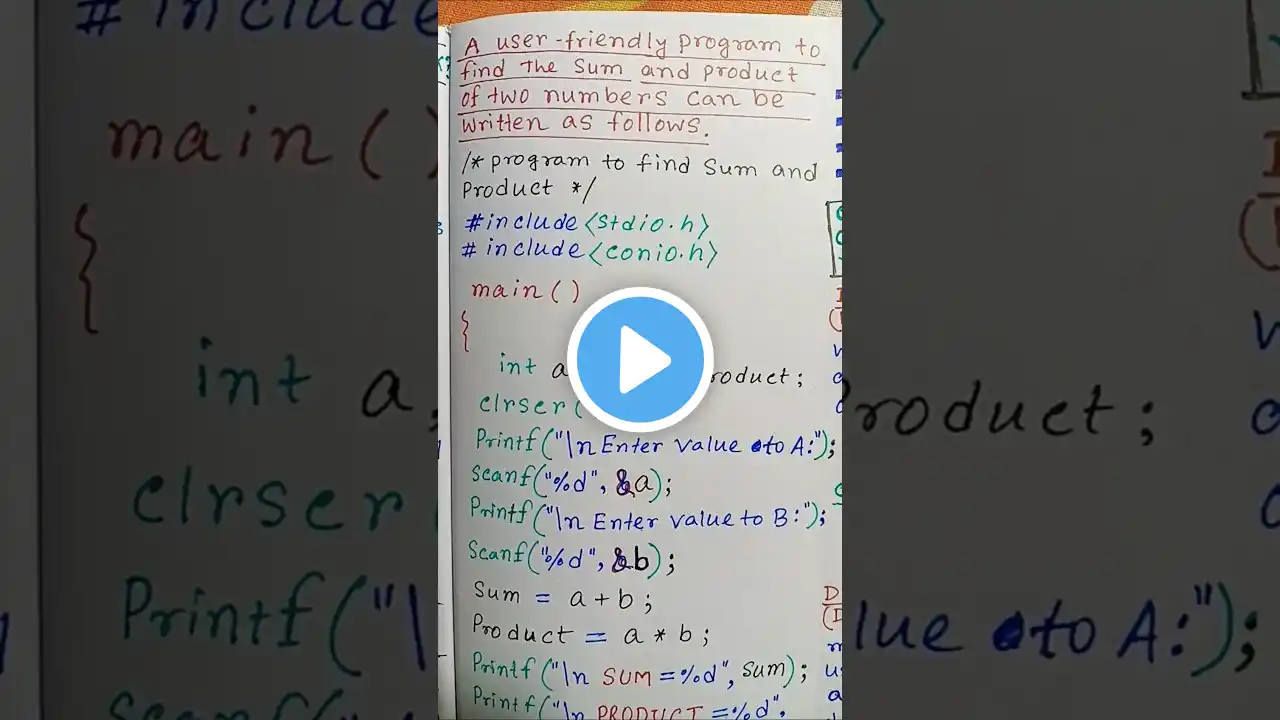 A user-friendly program to
find the Sum and product
of two numbers can be
written as follows.
/* program to find Sum and
Product */
#include <stdio.h>
# include <conio.h>
main()
{
int a roduct;
clrser (
Printf("\n Enter value to A:");
Scanf("%d", &a);
Printf("\n Enter value to B:");
Scanf("%d", &b);
Sum = a + b ;
Product = a * b ;
Printf ("\n SUM =%d", sum) ;
Printf ("\n PRODUCT =%d",